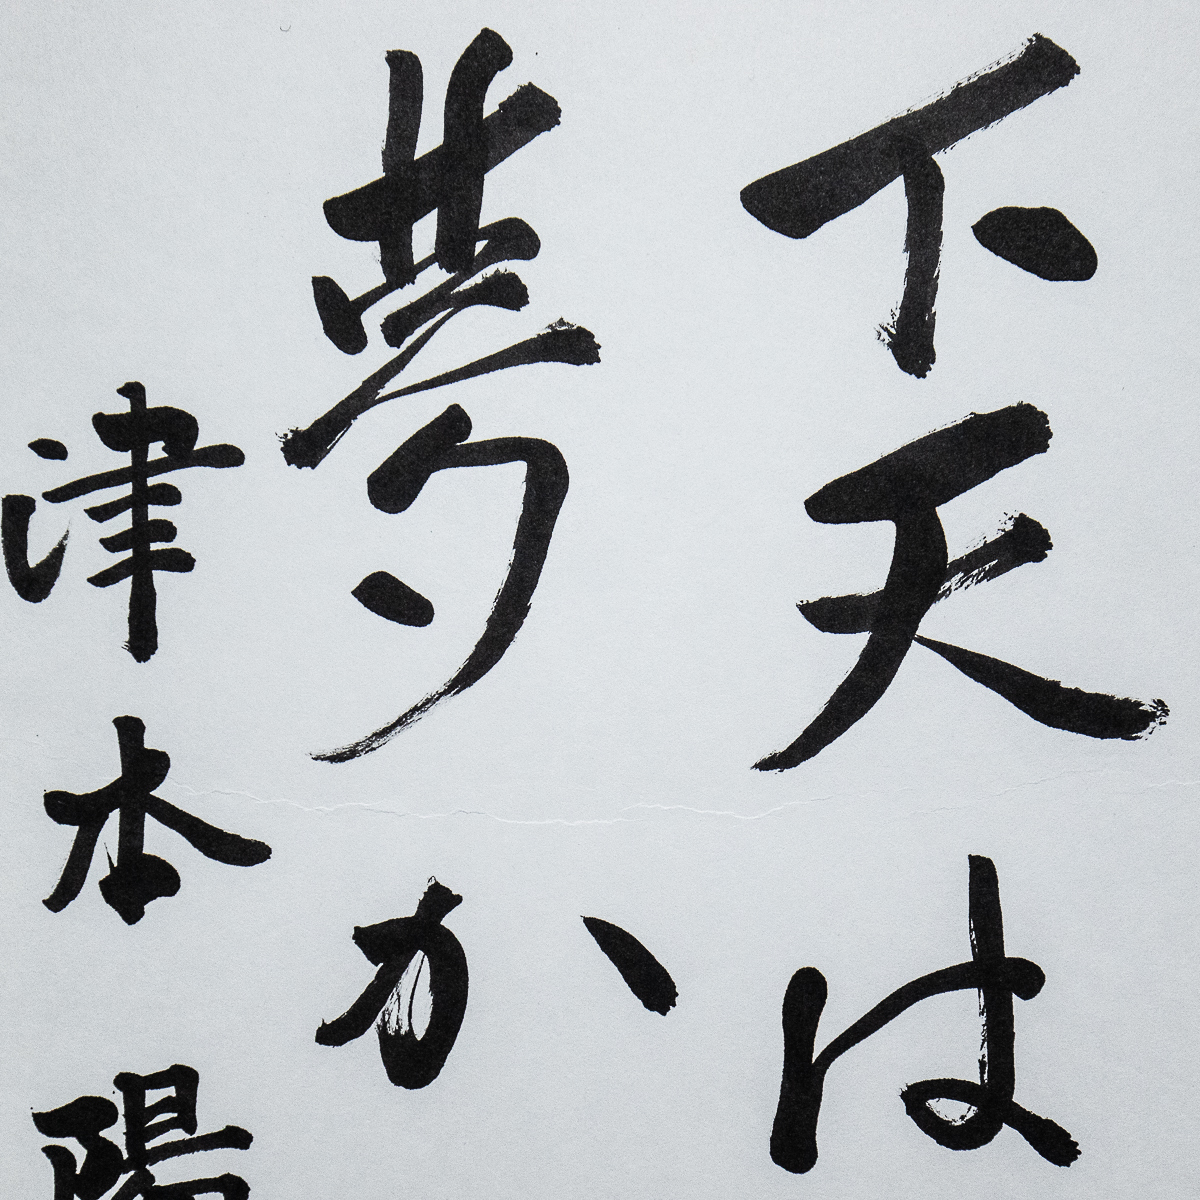 下天は
夢か
津本陽